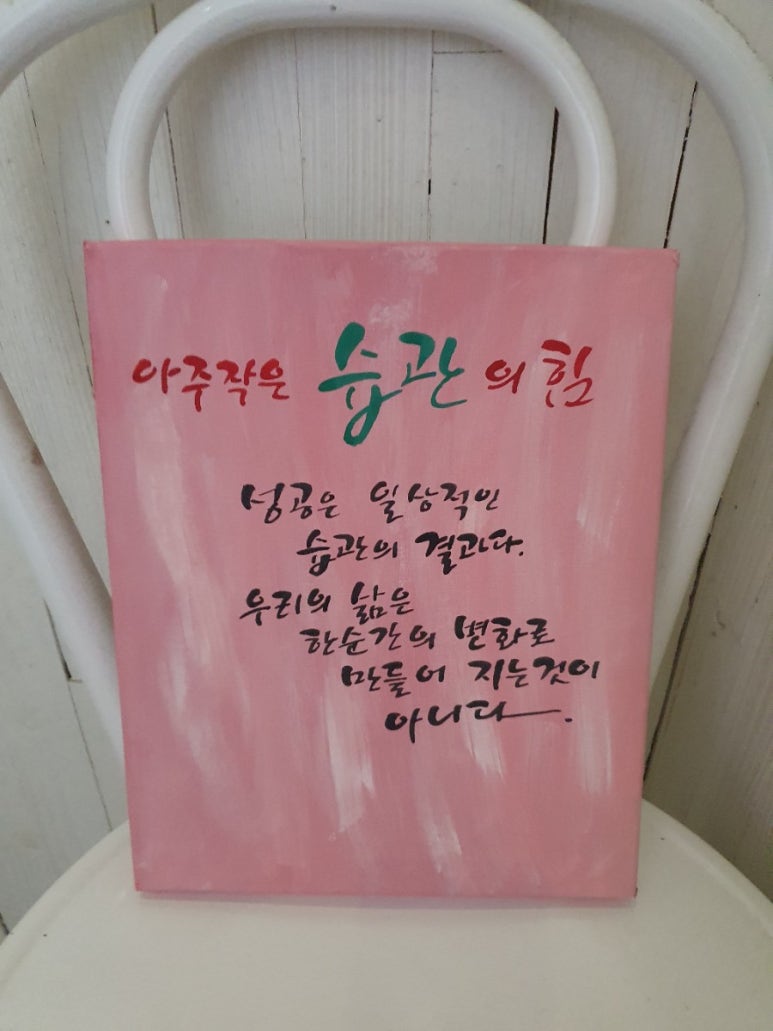 아주작은 습관의 힘
성공은 일상적인
습관의 결과다.
우리의 삶은
한순간의 변화로
만들어 지는것이
아니다.